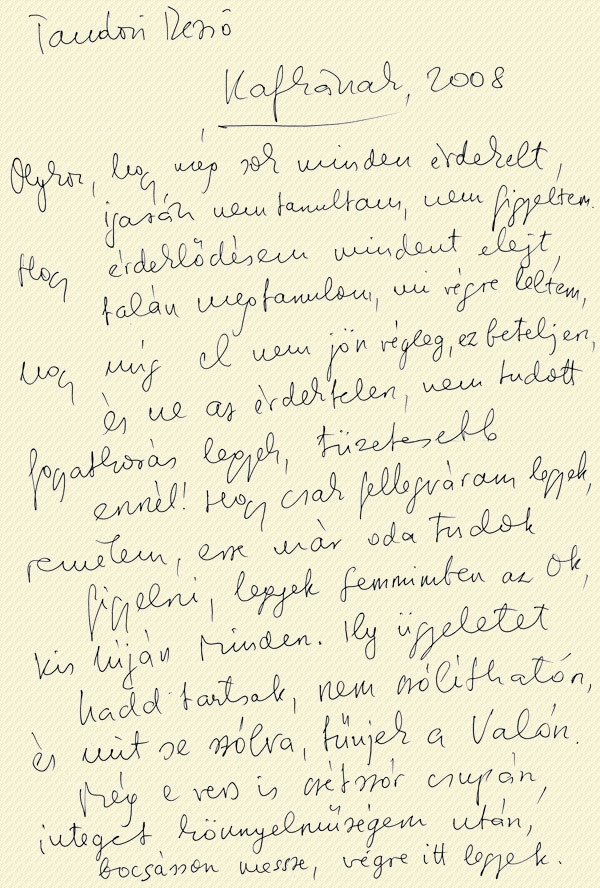 Tandori Dezső
Kafkának, 2008
Olykor, hogy még sok minden érdekelt,
igazán nem tanultam, nem figyeltem.
Hogy érdeklődésem mindent elejt,
talán megtanulom, mi végre lettem,
hogy míg el nem jön végleg, ez beteljen,
és ne az érdektelen, nem tudott
fogatkozás legyek, tüzetesebb
ennél! Hogy csak fellegváram legyek,
remélem, erre már oda tudok
figyelni, legyek semmimben az Ok,
kis híján Minden. Ily ügyeletet
hadd tartsak, nem szólítható́n,
és mit se szólva, tűnjek a Valón.
Még e vers is szétszór csupán,
integet könnyelműségem után,
bocsásson messze, végre itt legyek.